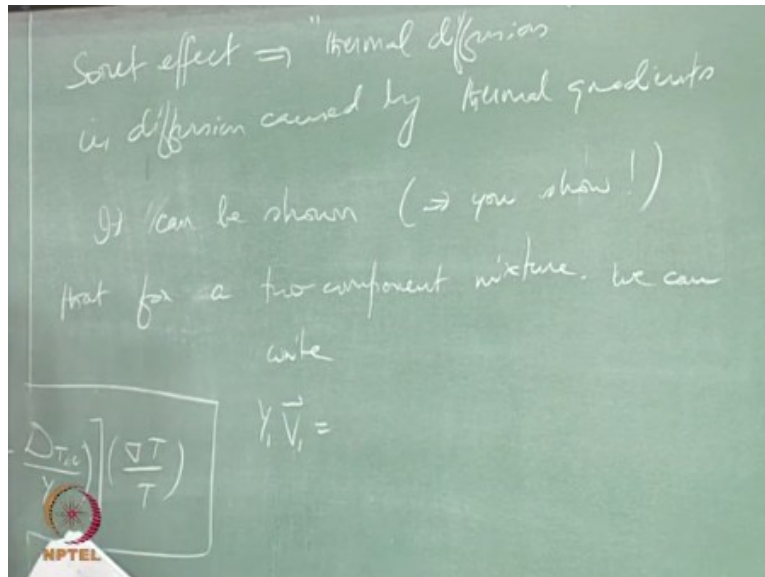 Soret effect ⇒ "thermal diffusion
is diffusion caused by thermal gradients
It can be shown (⇒ you show!)
that for a two component mixture. we can
write
Y₁V⃗₁ =
D_T,i
Y )] (∇T
T)
NPTEL